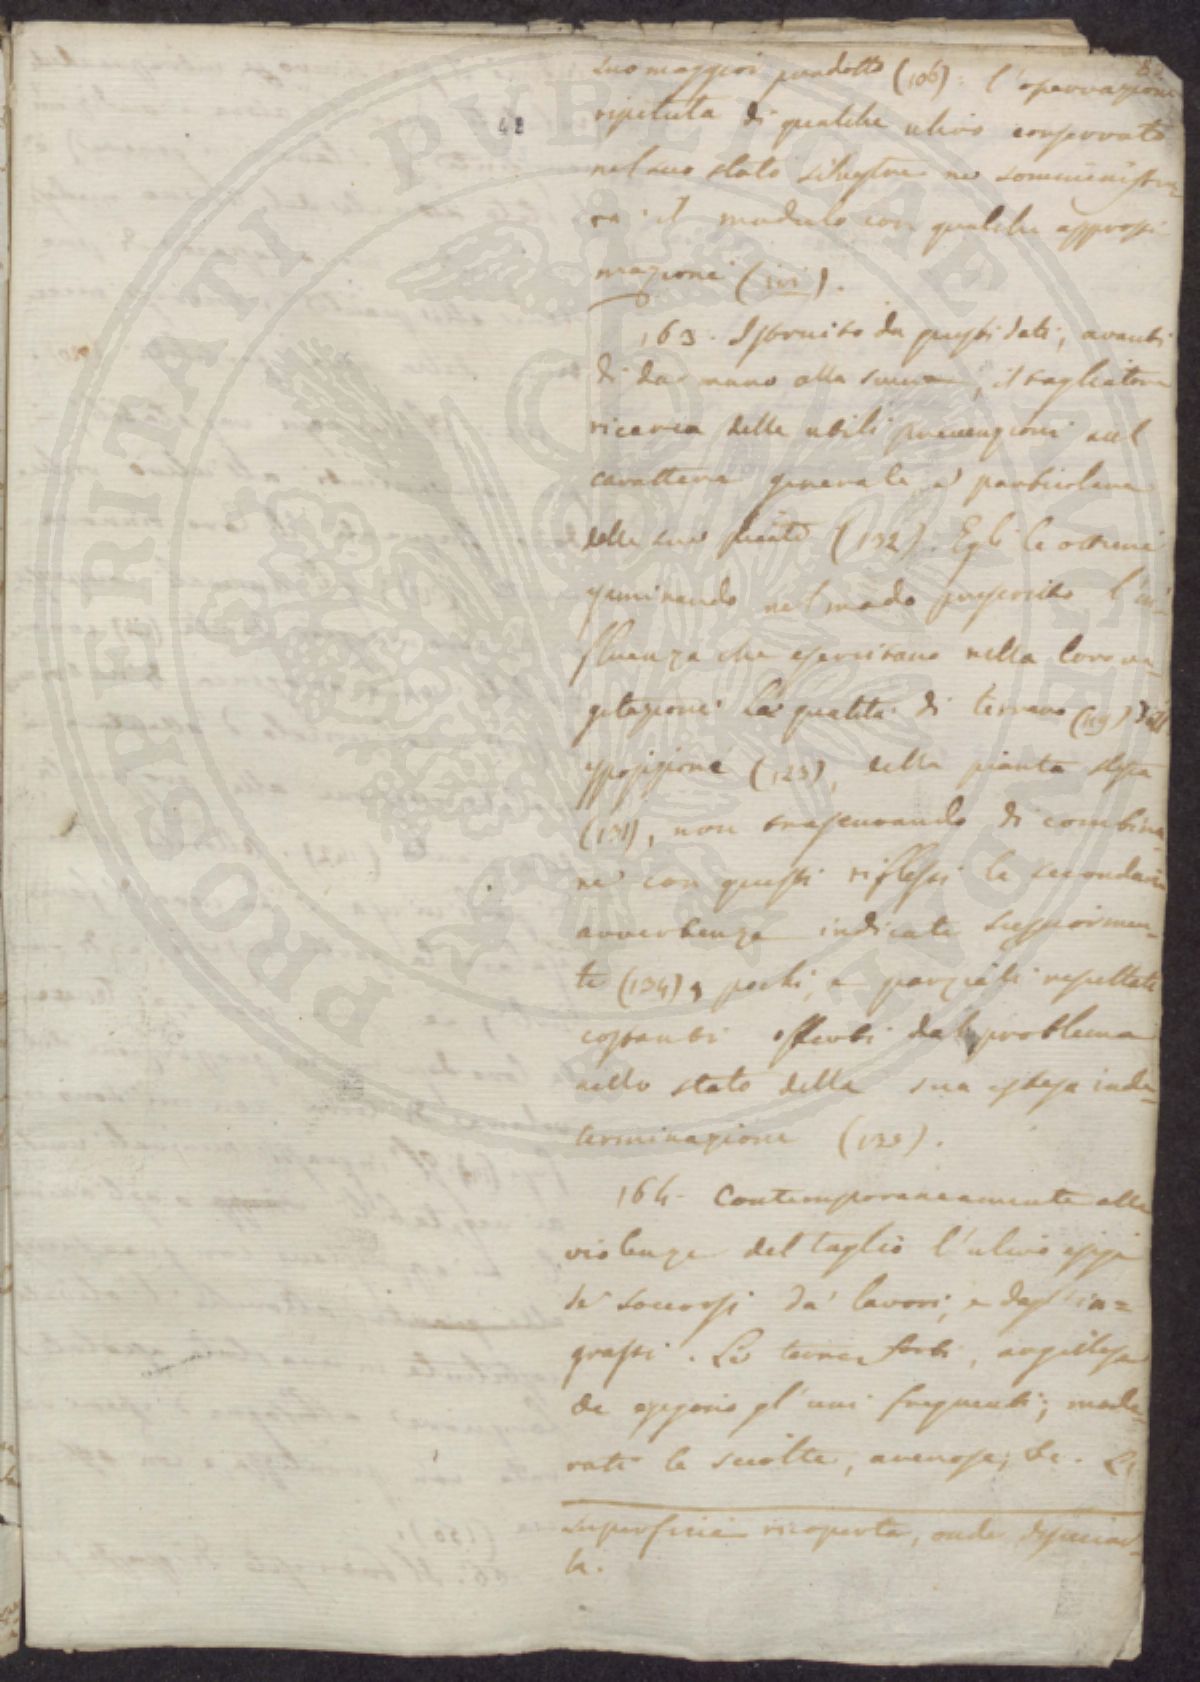 suo maggior prodotto (106): l'osservazione
ripetuta di qualche ulivo conservato
nel suo stato silvestre ne somministre-
rà il modulo con qualche approssi
mazione (ivi).
163. Istruito da questi dati, avanti
di dar mano alla scure, il tagliatore
ricerca delle utili prevenzioni sul
carattere generale e particolare
delle sue piante (132). Egli le ottiene
esaminando nel modo prescritto l'in-
fluenza che esercitano nella loro ve-
getazione la qualità di terreno (119) dell'
esposizione (123), della pianta stessa
(131), non trascurando di combina-
re con questi riflessi le secondarie
avvertenze indicate superiormen-
te (134), pochi, e parziali risultati
costanti offerti dal problema
nello stato della sua estesa inde-
terminazione (133).
164. Contemporaneamente alla
violenza del taglio l'ulivo esige
de' soccorsi da' lavori, e dagl'in=
grassi. Le terre forti, argillose
&c esigono gl'uni frequenti; mode-
rati le sciolte, arenose, &c. Le
superficie ricoperta, onde
la.
PROSPERITATI PUBLICAE AUGENDAE
42